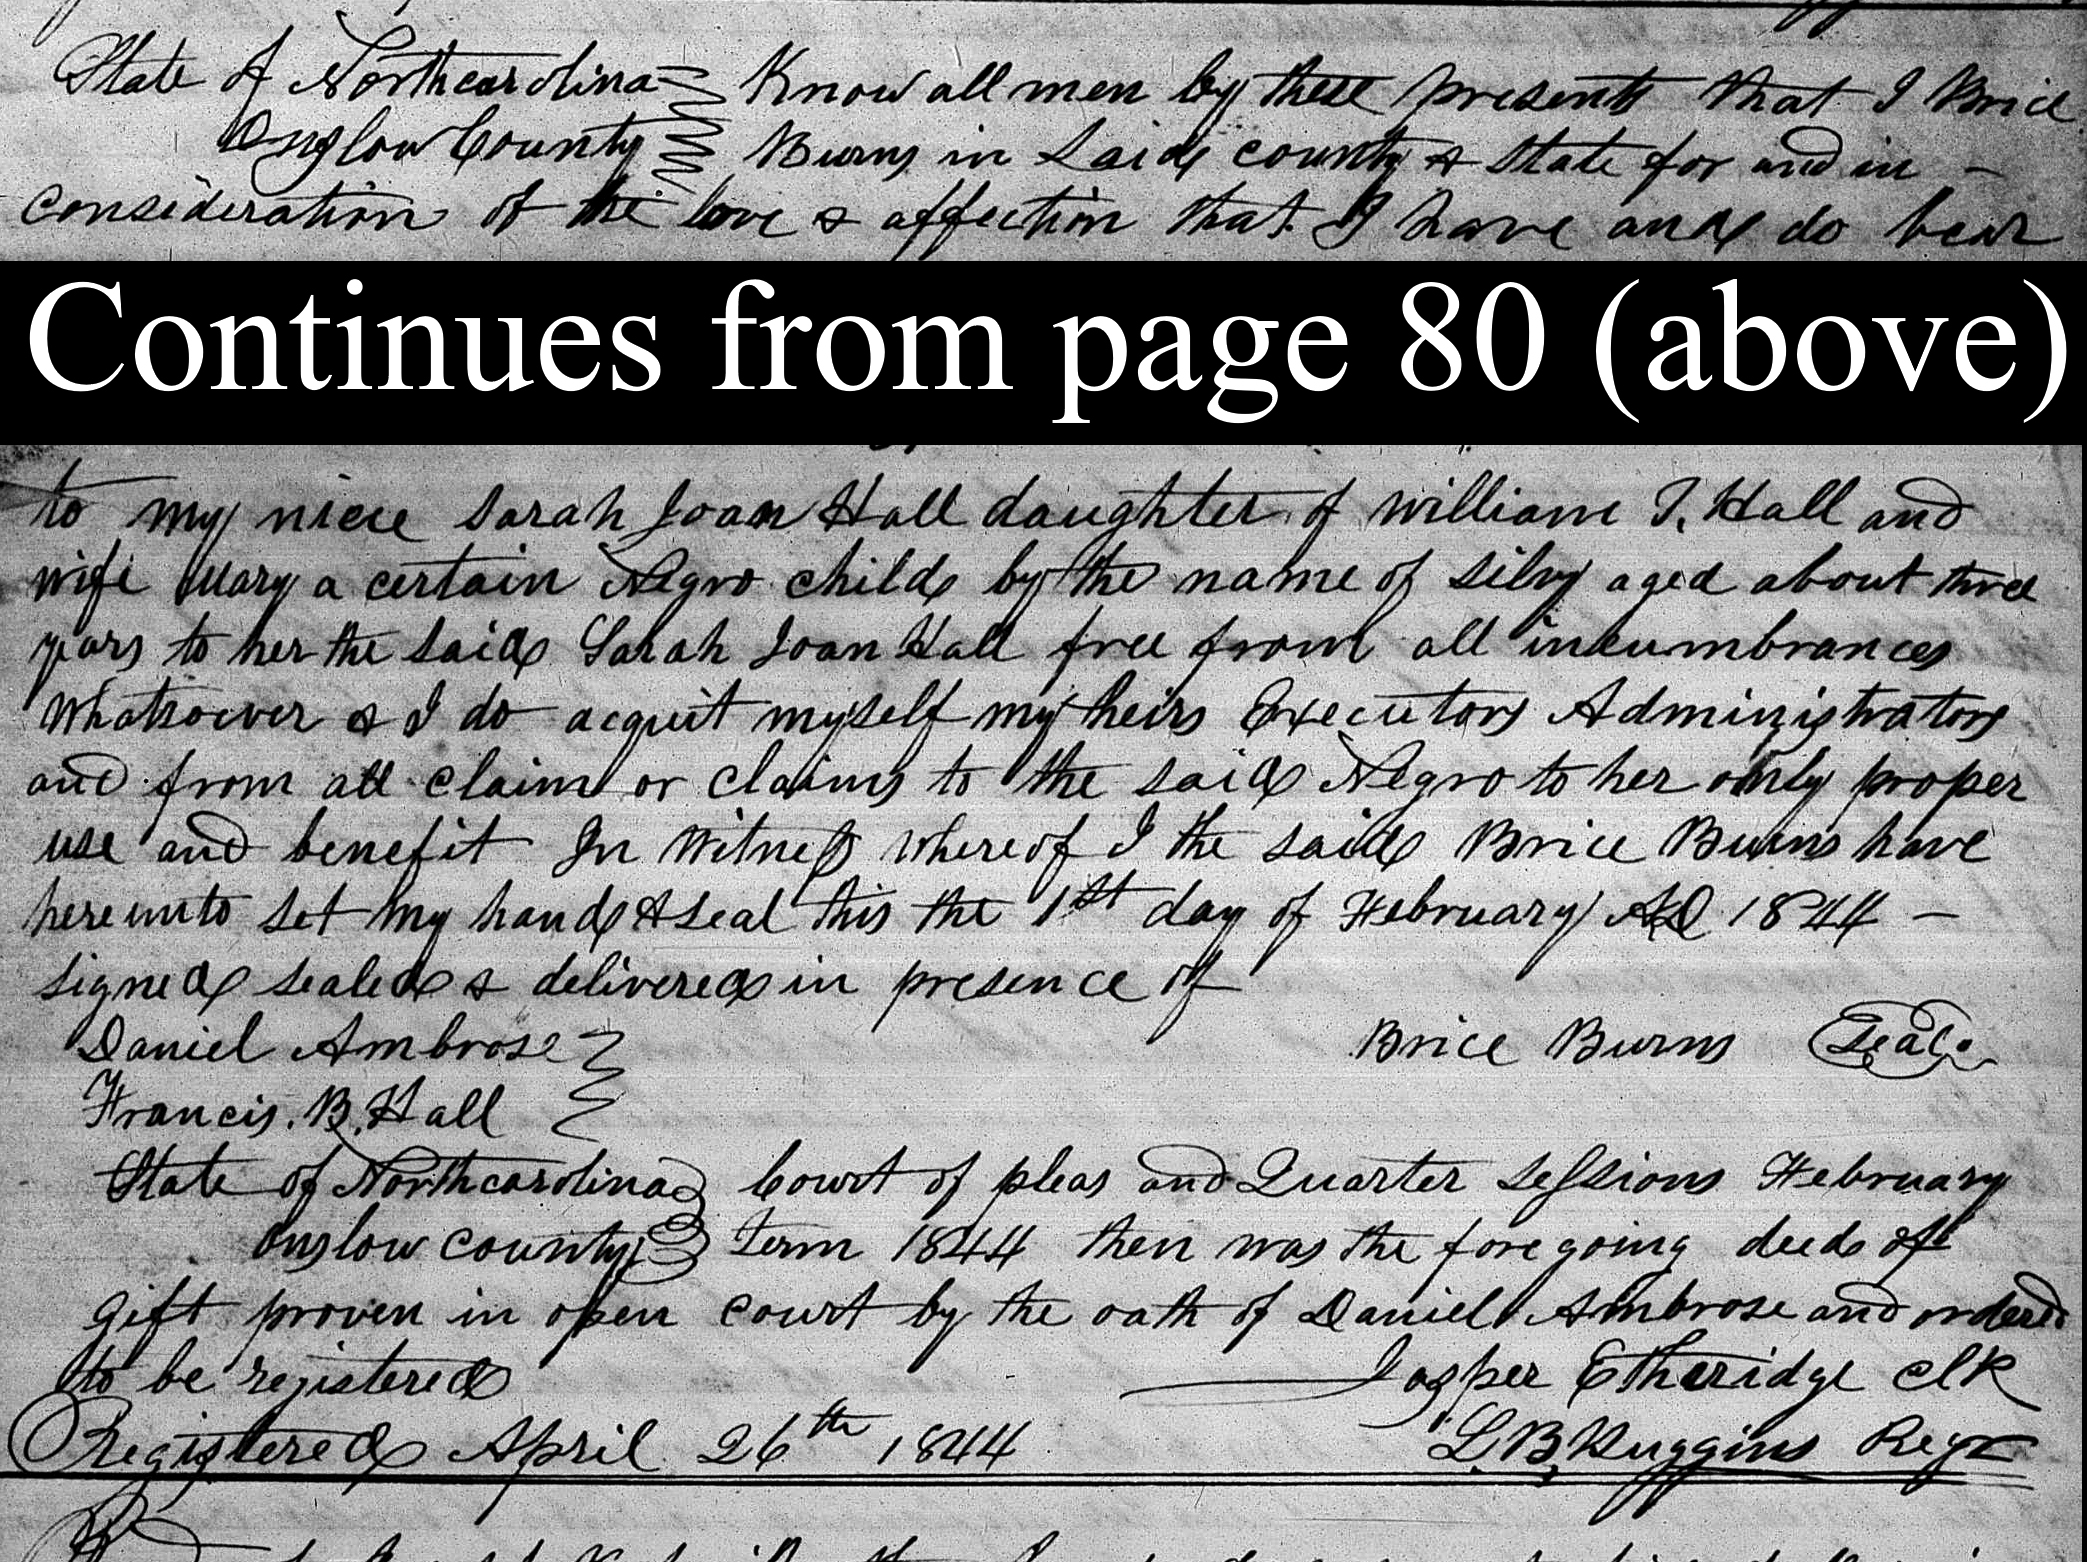 State of Northcarolina Know all men by these presents that I Brice
Onslow County Burns in Said county & State for and in -
consideration of the love & affection that I have and do bear
Continues from page 80 (above)
to my niece Sarah Joan Hall daughter of William T. Hall and
wife Mary a certain Negro child by the name of Silvy aged about three
years to her the said Sarah Joan Hall free from all incumbrances
Whatsoever & I do acquit myself my heirs Executors Administrators
and from all claim or claims to the said Negro to her only proper
use and benefit In Witness whereof I the said Brice Burns have
hereunto set my hand & seal this the 1st day of February AD 1844 -
signed sealed & delivered in presence of
Daniel Ambrose Brice Burns Seal
Francis. B. Hall
State of Northcarolina Court of pleas and Quarter sessions February
Onslow county term 1844 then was the foregoing deed of
gift proven in open court by the oath of Daniel Ambrose and ordered
to be registered Jasper Etheridge clk
Registered April 26th 1844 L. B. Huggins Regr